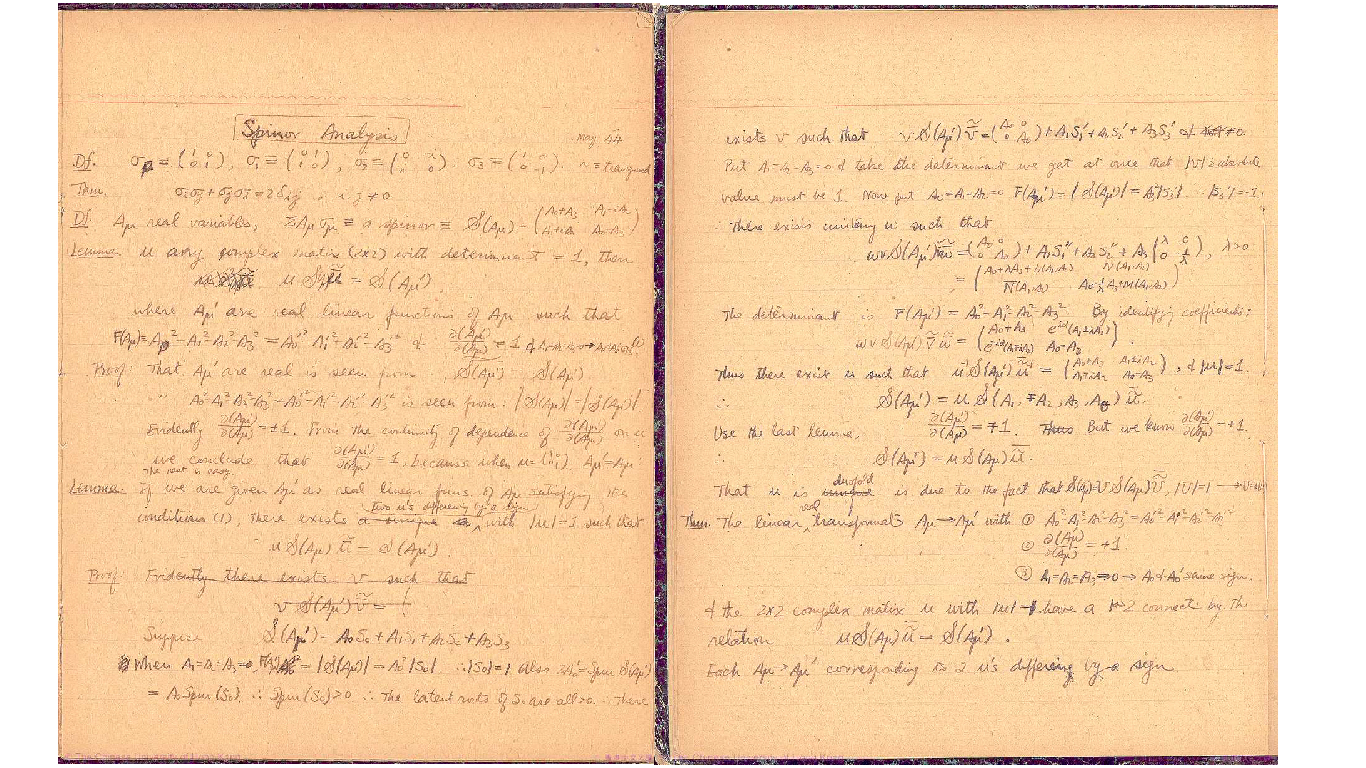 Spinor Analysis
May 44
Df. σ₀ = (1 0; 0 1), σ₁ = (0 1; 1 0), σ₂ = σ₃ = (1 0; 0 -1).
Then σᵢσⱼ + σⱼσᵢ = 2δᵢⱼ i, j ≠ 0
Df Aμ real variables, ΣAμσμ ≡ a spinor ≡ S(Aμ) = (A₀+A₃ A₁-iA₂; A₁+iA₂ A₀-A₃)
Lemma. u any complex matrix (2x2) with determinant = 1, then
u S(Aμ) ũ = S(Aμ'),
where Aμ' are real linear functions of Aμ such that
F(Aμ) = A₀²-A₁²-A₂²-A₃² = A₀'²-A₁'²-A₂'²-A₃'² & ∂(Aμ')/∂(Aμ) = 1
Proof: That Aμ' are real is seen from S(Aμ') S(Aμ')
" A₀²-A₁²-A₂²-A₃² = A₀'²-A₁'²-A₂'²-A₃'² is seen from: |S(Aμ)| = |S(Aμ')|
Evidently ∂(Aμ')/∂(Aμ) = ±1. From the continuity of dependence of ∂(Aμ')/∂(Aμ) on u
we conclude that ∂(Aμ')/∂(Aμ) = 1, because when u = (1 0; 0 1) Aμ' = Aμ
The rest is easy.
Lemma. If we are given Aμ' as real linear funs. of Aμ satisfying the
two u's differing by a sign
conditions (1), there exists a unique with |u|=1 such that
u S(Aμ) ũ = S(Aμ').
Proof: Evidently there exists v such that
v S(Aμ') ṽ =
Suppose S(Aμ') = A₀S₀ + A₁S₁ + A₂S₂ + A₃S₃
When A₁=A₂=A₃=0 F(Aμ') = |S(Aμ')| = A₀²|S₀| ∴ |S₀|=1 Also 2A₀' = Spur S(Aμ')
= A₀ Spur(S₀). ∴ Spur(S₀)>0 ∴ The latent roots of S₀ are all >0. ∴ There
exists v such that v S(Aμ') ṽ = (A₀ 0; 0 A₀) + A₁S₁' + A₂S₂' + A₃S₃'
Put A₁=A₂=A₃=0 & take the determinant we get at once that |v|'s absolute
value must be 1. Now put A₀=A₁=A₂=0 F(Aμ') = |S(Aμ')| = A₃²|S₃'| ∴ |S₃'|=-1.
∴ There exists unitary w such that
wv S(Aμ') ṽ w̃ = (A₀ 0; 0 A₀) + A₁S₁'' + A₂S₂'' + A₃(λ 0; 0 -1/λ), λ>0
The determinant is F(Aμ') = A₀²-A₁²-A₂²-A₃² By identifying coefficients:
wv S(Aμ') ṽ w̃ =
Thus there exist u such that u S(Aμ') ũ = (A₀+A₃ A₁±iA₂; A₁∓iA₂ A₀-A₃), & |u|=1.
∴ S(Aμ') = u S(A₁, ∓A₂, A₃, A₀) ũ.
Use the last lemma, ∂(Aμ')/∂(Aμ) = ∓1. Thus But we know ∂(Aμ')/∂(Aμ) = +1.
∴ S(Aμ') = u S(Aμ) ũ.
twofold
That u is unique is due to the fact that S(Aμ) = v S(Aμ) ṽ, |v|=1
real
Then. The linear transformats Aμ → Aμ' with ① A₀²-A₁²-A₂²-A₃² = A₀'²-A₁'²-A₂'²-A₃'²
② ∂(Aμ')/∂(Aμ) = +1.
③ A₁=A₂=A₃=0 → A₀ & A₀' same sign.
& the 2x2 complex matix u with |u|=1 have a 1-2 connect. by the
relation u S(Aμ) ũ = S(Aμ').
Each Aμ → Aμ' corresponding to 2 u's differing by a sign